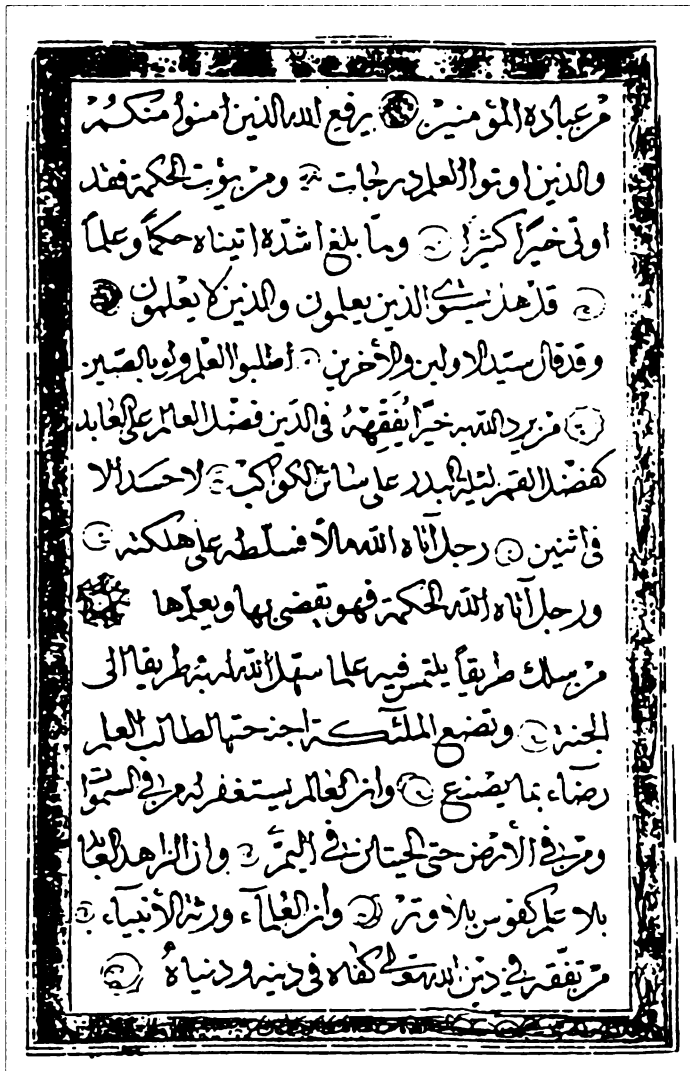 من عباده المؤمنين يرفع الله الذين امنوا منكم
والذين اوتوا العلم درجات ومن يؤت الحكمة فقد
اوتى خيرًا كثيرا ولمّا بلغ اشدّه اتيناه حكمًا وعلمًا
قل هل يستوى الذين يعلمون والذين لا يعلمون
وقد قال سيّد الاولين والأخرين اطلبوا العلم ولو بالصّين
من يرد اللّه به خيرًا يُفَقِّههُ فى الدّين فضل العالم على العابد
كفضل القمر ليلة البدر على سائر الكواكب لا حسد الا
فى اثنين رجل آتاه اللّه مالًا فسلّطه على هلكته
ورجل آتاه اللّه الحكمة فهو يقضى بها ويعلّمها
من سلك طريقًا يلتمس فيه علما سهّل اللّه له به طريقا الى
الجنة وتضع الملئكة اجنحتها لطالب العلم
رضآء بما يصنع وان العالم يستغفر له من فى السّموٰا
ومن فى الأرض حتى الحيتان فى اليمّ وان الزاهد
بلا علم كقوس بلا وتر وان العلمآء ورثة الأنبيآء
من تفقّه فى دين اللّه تعالى كفاه فى دينه ودنياهُ